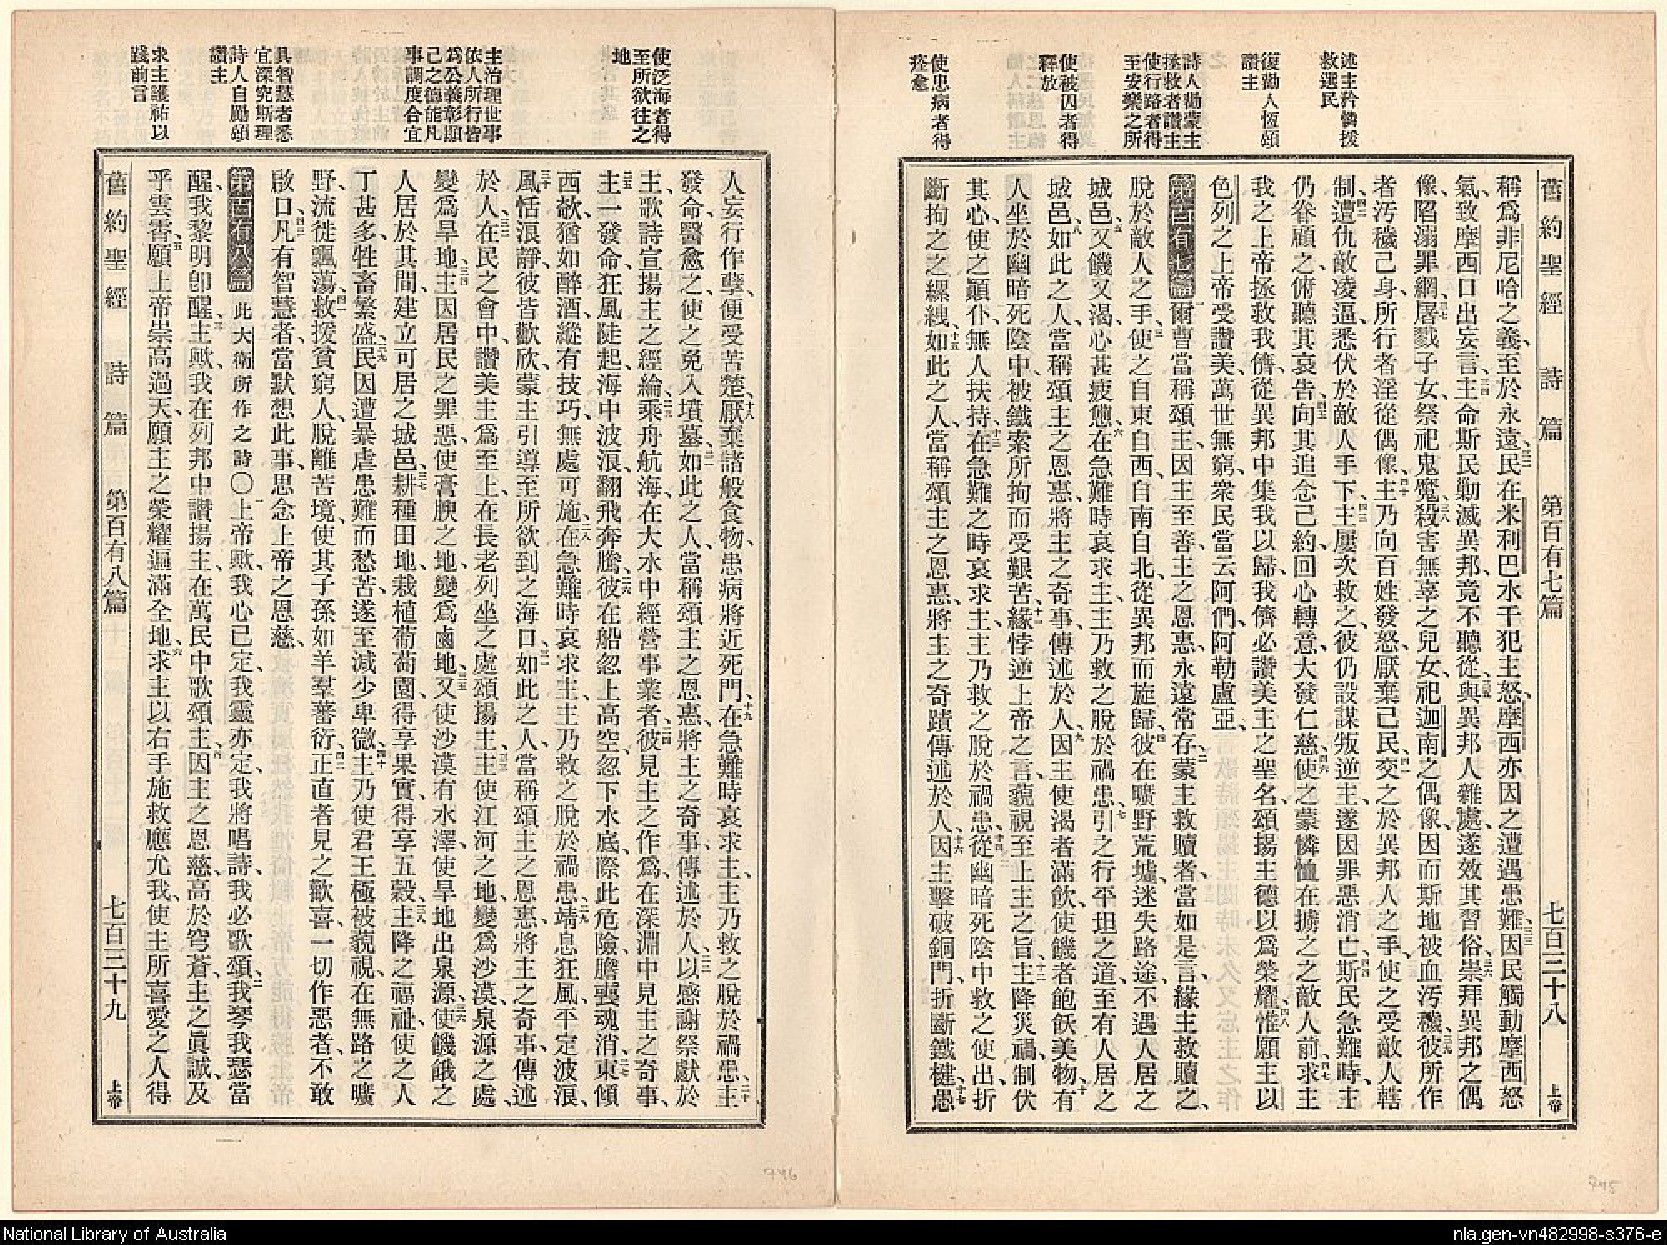 舊約聖經 詩篇 第百有七篇 七百三十八 上帝
述主矜憐援
救選民
復勸人恆頌
讚主
詩人勸蒙主
拯救者讚主
使行路者得
至安樂之所
使被囚者得
釋放
使患病者得
痊愈
稱爲非尼哈之義、至於永遠、民在米利巴水干犯主怒、摩西亦因之遭遇患難、因民觸動摩西怒
氣、致摩西口出妄言、主命斯民勦滅異邦、竟不聽從、與異邦人雜處、遂效其習俗、崇拜異邦之偶
像、陷溺罪網、屠戮子女、祭祀鬼魔、殺害無辜之兒女、祀迦南之偶像、因而斯地被血汚穢、彼所作
者汚穢己身、所行者淫從偶像、主乃向百姓發怒、厭棄己民、交之於異邦人之手、使之受敵人轄
制、遭仇敵凌逼、悉伏於敵人手下、主屢次救之、彼仍設謀叛逆主、遂因罪惡消亡、斯民急難時、主
仍眷顧之、俯聽其哀告、向其追念己約、回心轉意、大發仁慈、使之蒙憐恤在擄之之敵人前、求主
我之上帝拯救我儕、從異邦中集我以歸、我儕必讚美主之聖名、頌揚主德以爲榮耀、惟願主以
色列之上帝受讚美、萬世無窮、衆民當云阿們、阿勒盧亞、
第百有七篇 爾曹當稱頌主、因主至善、主之恩惠、永遠常存、蒙主救贖者、當如是言、緣主救贖之、
脫於敵人之手、使之自東自西、自南自北、從異邦而旋歸、彼在曠野荒墟、迷失路途、不遇人居之
城邑、又饑又渴、心甚疲憊、在急難時哀求主、主乃救之脫於禍患、引之行平坦之道、至有人居之
城邑、如此之人、當稱頌主之恩惠、將主之奇事傳述於人、因主使渴者滿飲、使饑者飽飫美物、有
人坐於幽暗死陰中、被鐵索所拘而受艱苦、緣悖逆上帝之言、藐視至上主之旨、主降災禍、制伏
其心、使之顚仆、無人扶持、在急難之時哀求主、主乃救之脫於禍患、從幽暗死陰中救之使出、折
斷拘之之縲絏、如此之人、當稱頌主之恩惠、將主之奇蹟傳述於人、因主擊破銅門、折斷鐵楗、愚
使泛海者得
至所欲往之
地
主治理世事
依人所行皆
爲公義彰顯
己之德能凡
事調度合宜
具智慧者悉
宜深究斯理
詩人自勵頌
讚主
求主護祐以
踐前言
人妄行作孽、便受苦楚、厭棄諸般食物、患病將近死門、在急難時哀求主、主乃救之脫於禍患、主
發命醫愈之、使之免入墳墓、如此之人、當稱頌主之恩惠、將主之奇事傳述於人、以感謝祭獻於
主、歌詩宣揚主之經綸、乘舟航海、在大水中經營事業者、彼見主之作爲、在深淵中見主之奇事、
主一發命、狂風陡起、海中波浪翻飛奔騰、彼在船忽上高空、忽下水底、際此危險、膽喪魂消、東傾
西攲、猶如醉酒、縱有技巧、無處可施、在急難時哀求主、主乃救之脫於禍患、靖息狂風、平定波浪、
風恬浪靜、彼皆歡欣、蒙主引導至所欲到之海口、如此之人、當稱頌主之恩惠、將主之奇事、傳述
於人、在民之會中讚美主爲至上、在長老列坐之處頌揚主、主使江河之地、變爲沙漠、泉源之處、
變爲旱地、主因居民之罪惡、使膏腴之地變爲鹵地、又使沙漠有水澤、使旱地出泉源、使饑餓之
人居於其間、建立可居之城邑、耕種田地、栽植葡萄園、得享果實、得享五穀、主降之福祉、使之人
丁甚多、牲畜繁盛、民因遭暴虐患難而愁苦、遂至減少卑微、主乃使君王極被藐視、在無路之曠
野、流徙飄蕩、救援貧窮人、脫離苦境、使其子孫如羊羣蕃衍、正直者見之歡喜、一切作惡者不敢
啟口、凡有智慧者、當默想此事、思念上帝之恩慈、
第百有八篇 此大衛所作之詩〇上帝歟、我心已定、我靈亦定、我將唱詩、我必歌頌、我琴我瑟當
醒、我黎明卽醒、主歟、我在列邦中讚揚主、在萬民中歌頌主、因主之恩慈、高於穹蒼、主之眞誠、及
乎雲霄、願上帝崇高過天、願主之榮耀遍滿全地、求主以右手施救、應允我、使主所喜愛之人得
舊約聖經 詩篇 第百有八篇 七百三十九 上帝
746
745
National Library of Australia
nla.gen-vn482998-s376-e